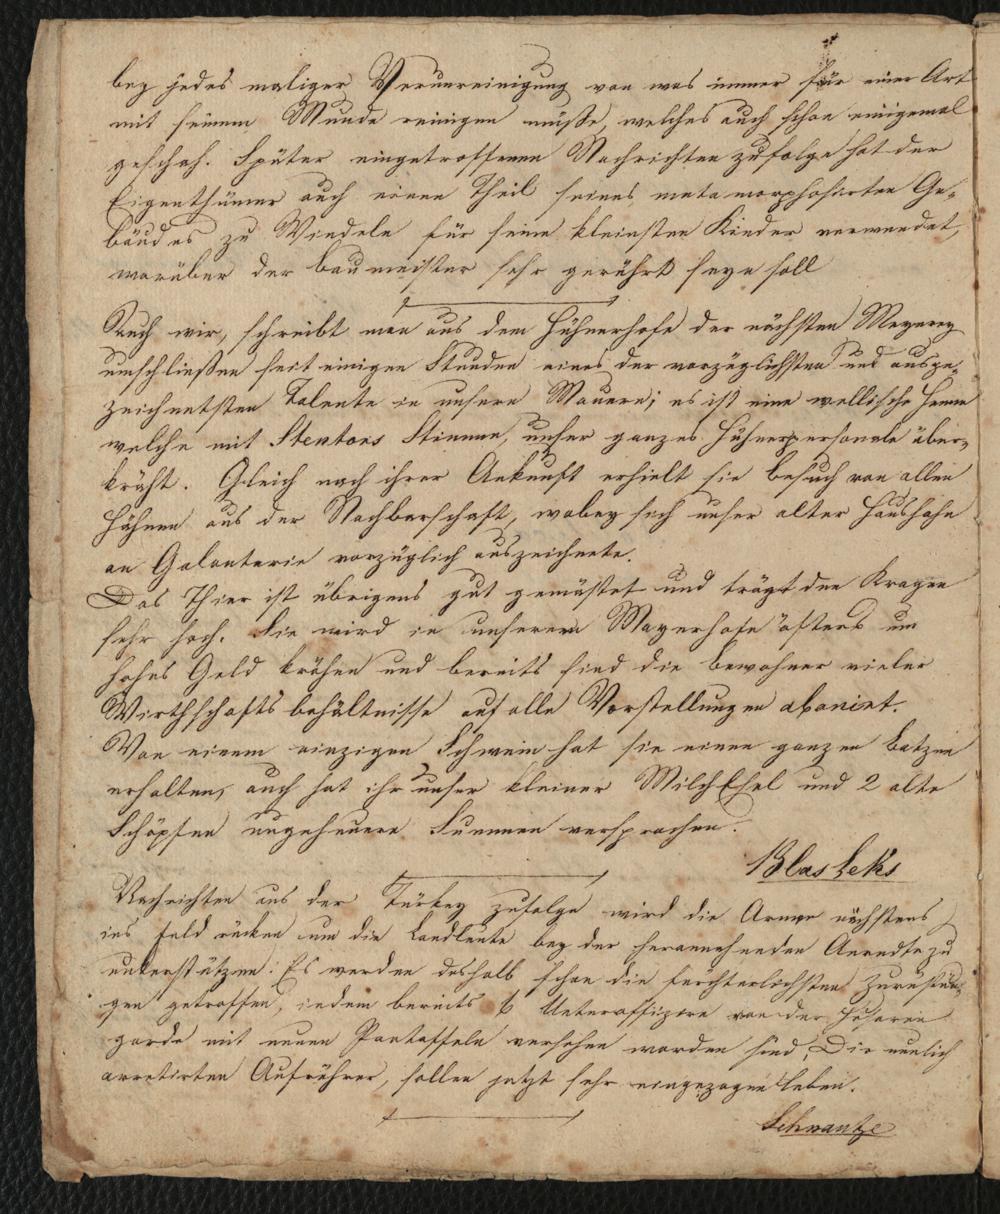 bey jedes maliger Verunreinigung von was immer für einer Art
mit seinem Munde reinigen müße, welches auch schon einigemal
geschah. Später eingetroffenen Nachrichten zufolge hat der
Eigenthümer auch einen Theil seines metamorphosirten Ge-
bäudes zu Windeln für seine kleinsten Kinder verwendet,
worüber der Baumeister sehr gerührt seyn soll
Auch wir, schreibt man aus dem Hühnerhofe der nächsten Meyerey
umschließen seit einigen Stunden eines der vorzüglichsten und ausge-
zeichnetsten Talente in unsern Mauern; es ist eine wellische Henne
welche mit Stentors Stimme, unser ganzes Hühnerpersonale über-
kräht. Gleich nach ihrer Ankunft erhielt sie Besuch von allen
Hähnen aus der Nachbarschaft, wobey sich unser alter Haushahn
an Galanterie vorzüglich auszeichnete.
Das Thier ist übrigens gut gemästet und trägt den Kragen
sehr hoch. Sie wird in unserem Mayerhofe öfters um
hohes Geld krähen und bereits sind die Bewohner vieler
Wirthschaftsbehältnisse auf alle Vorstellungen abonirt.
Von einem einzigen Schwein hat sie einen ganzen Batzen
erhalten, auch hat ihr unser kleiner MilchEsel und 2 alte
Schöpsen ungeheuere Summen versprochen.
Blasleks
Nachrichten aus der Türkey zufolge wird die Armee nächstens
ins Feld rücken um die Landleute bey der herannahenden Aerndte zu
unterstützen. Es werden deshalb schon die fürchterlichsten Zurüstun-
gen getroffen, indem bereits 6 Unteroffizire von der Husaren
garde mit neuen Pantoffeln versehen worden sind. Die neulich
arretirten Aufrührer, sollen jetzt sehr eingezogen leben.
Schnautze